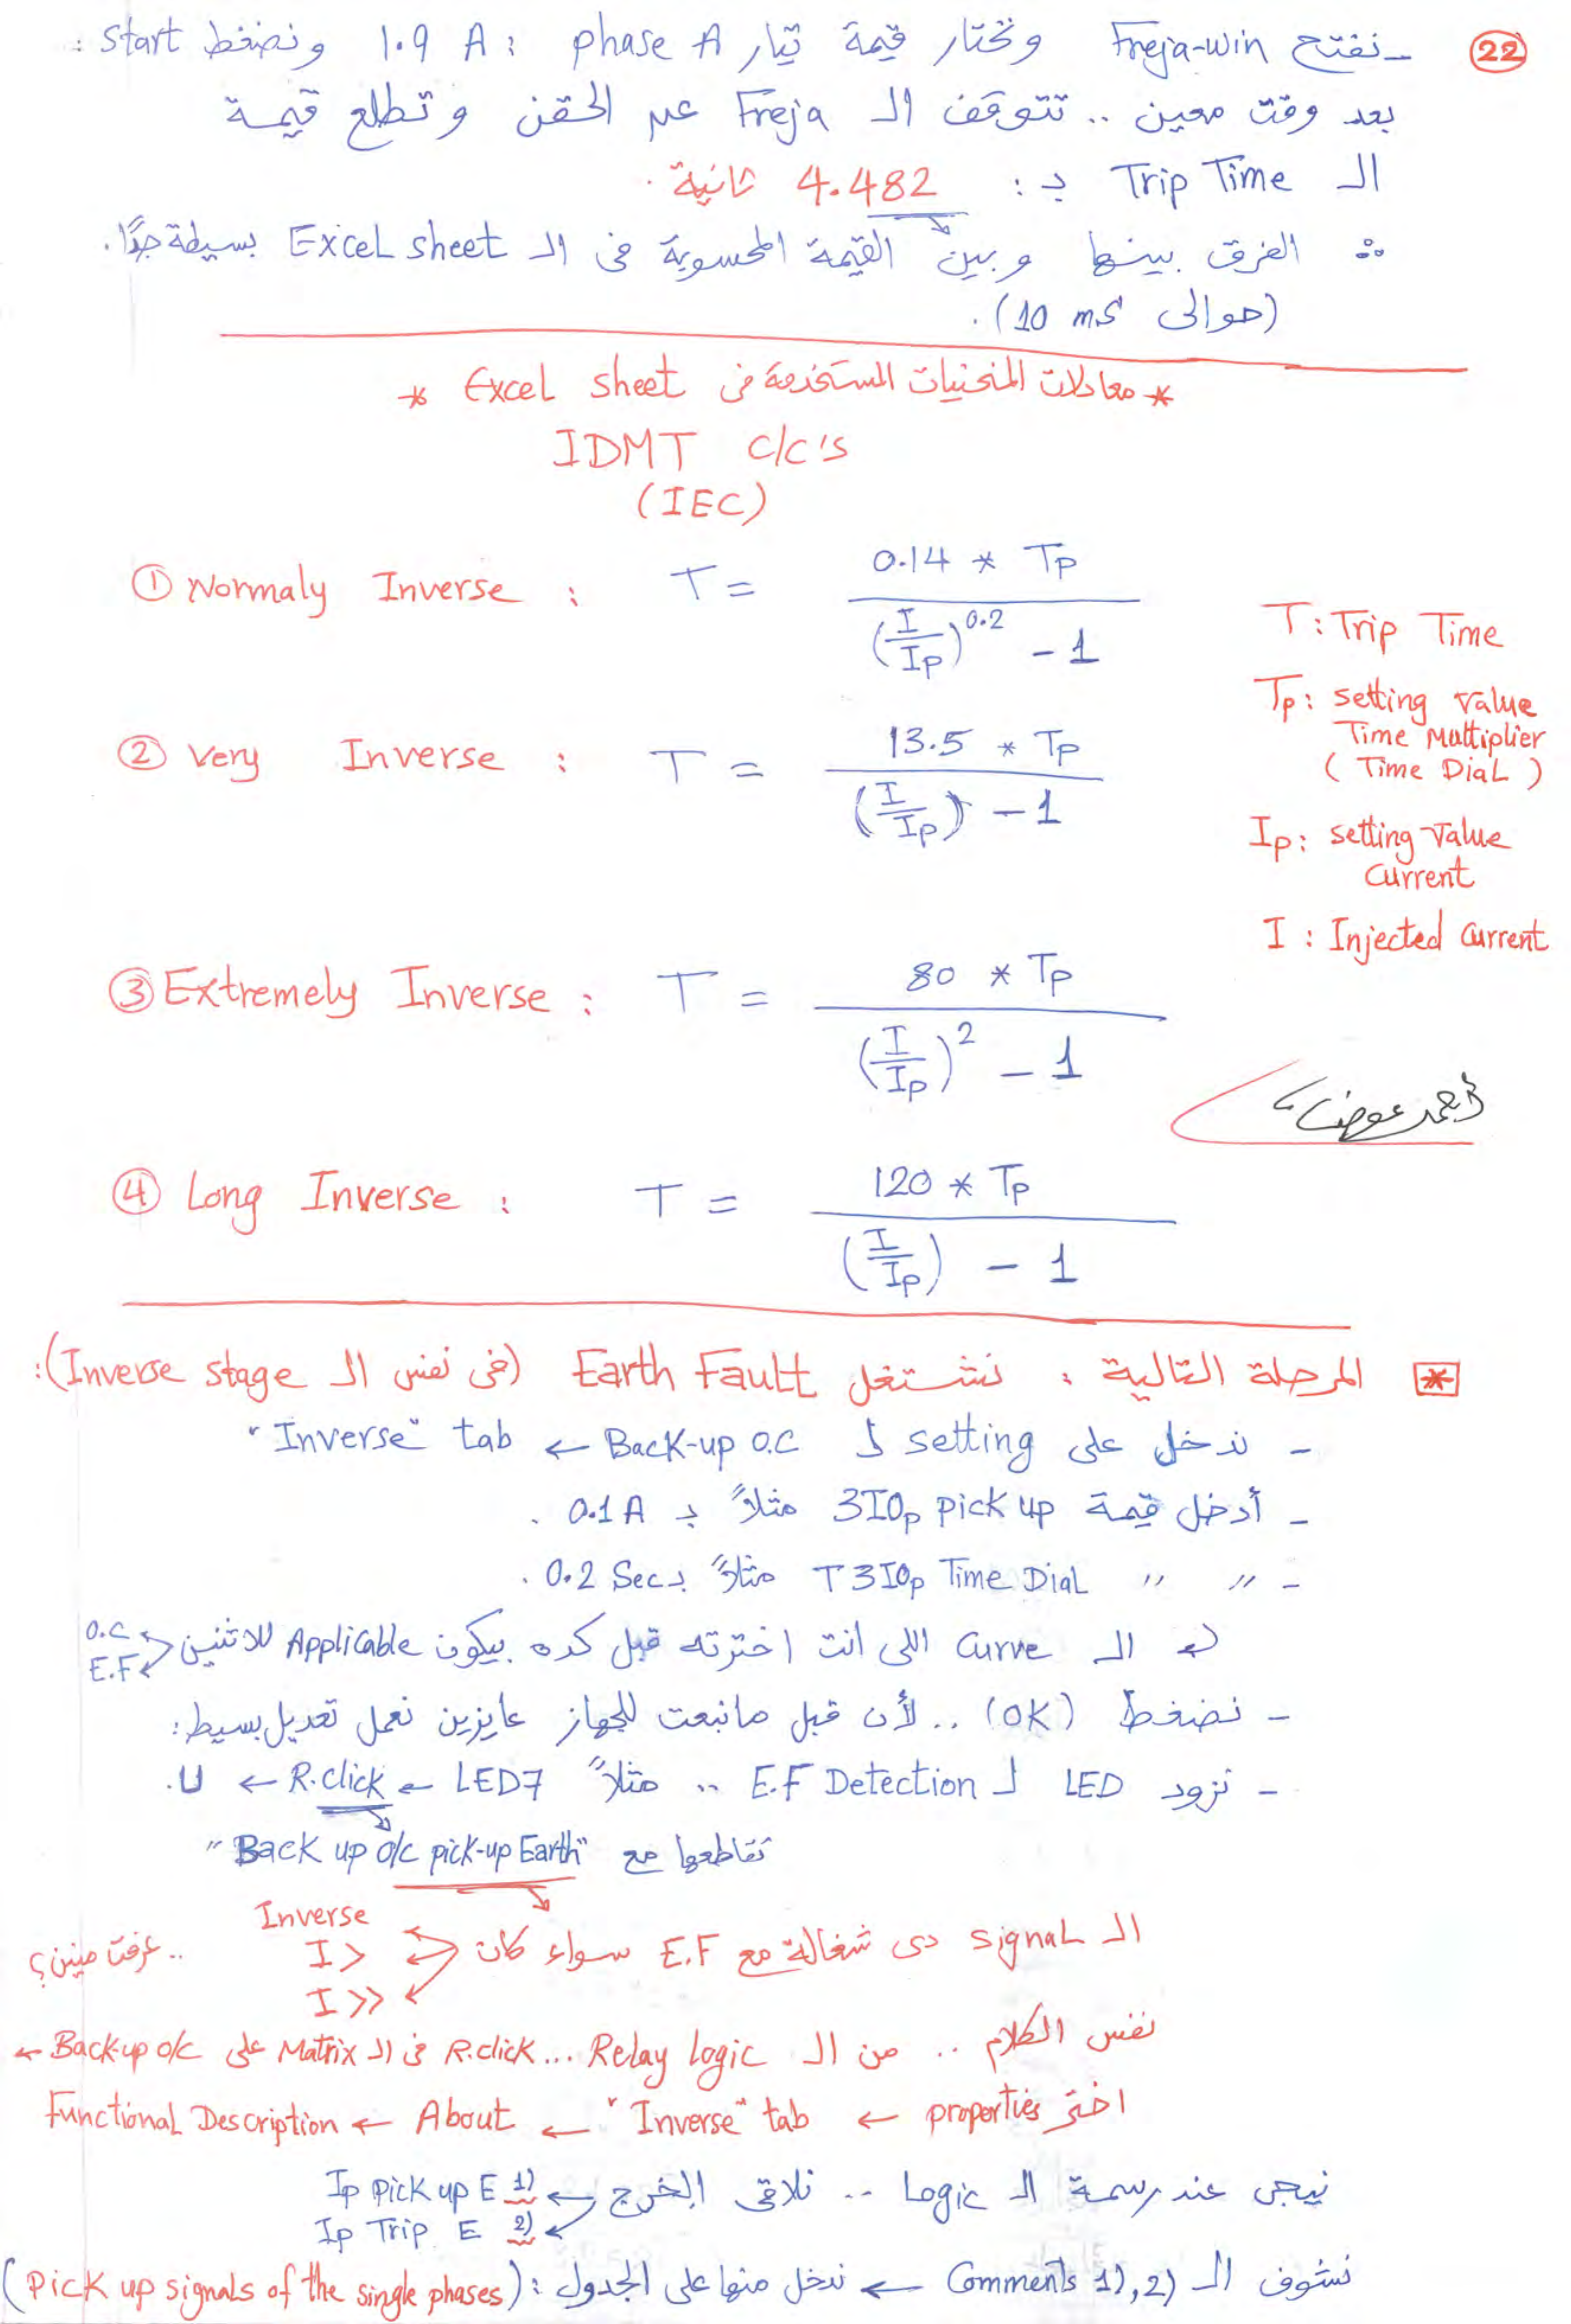 22
- نفتح Freja-win ونختار قيمة تيار phase A : 1.9 A ونضغط start :
بعد وقت معين .. تتوقف الـ Freja عن الحقن وتطلع قيمة
الـ Trip Time بـ : 4.482 ثانية .
∴ الفرق بينها وبين القيمة المحسوبة فى الـ Excel sheet بسيطة جدًا.
(حوالى 10 ms) .
* معادلات المنحنيات المستخدمة فى Excel sheet *
IDMT c/c's
(IEC)
① Normaly Inverse : T = 0.14 * Tp / (I/Ip)^0.2 - 1
T : Trip Time
② Very Inverse : T = 13.5 * Tp / (I/Ip) - 1
Tp : setting value
Time Multiplier
( Time Dial )
Ip : setting value
current
I : Injected current
③ Extremely Inverse : T = 80 * Tp / (I/Ip)^2 - 1
أحمد عوض
④ Long Inverse : T = 120 * Tp / (I/Ip) - 1
* المرحلة التالية : نشتغل Earth Fault (فى نفس الـ Inverse stage):
- ندخل على setting لـ Back-up O.C ← "Inverse" tab
- أدخل قيمة 3I0p pick up مثلاً بـ 0.1 A .
- " " T3I0p Time Dial مثلاً بـ 0.2 Sec .
الـ Curve اللى انت اخترته قبل كده بيكون Applicable للاتنين O.C
E.F
- نضغط (OK) .. لأن قبل مانبعت للجهاز عايزين نعمل تعديل بسيط :
- نزود LED لـ E.F Detection .. مثلاً LED7 ← R.click ← U.
تقاطعها مع "Back up o/c pick-up Earth"
الـ signal دى شغالة مع E.F سواء كان Inverse
I>
I>>
.. عرفت منين؟
نفس الكلام .. من الـ Relay logic ... R.click فى الـ Matrix على Back-up o/c ←
اختر properties ← "Inverse" tab ← About ← Functional Description
نيجى عند رسمة الـ Logic .. نلاقى الخرج ← Ip Pick up E 1)
Ip Trip E 2)
نشوف الـ Comments 1), 2) ← ندخل منها على الجدول : (Pick up signals of the single phases)